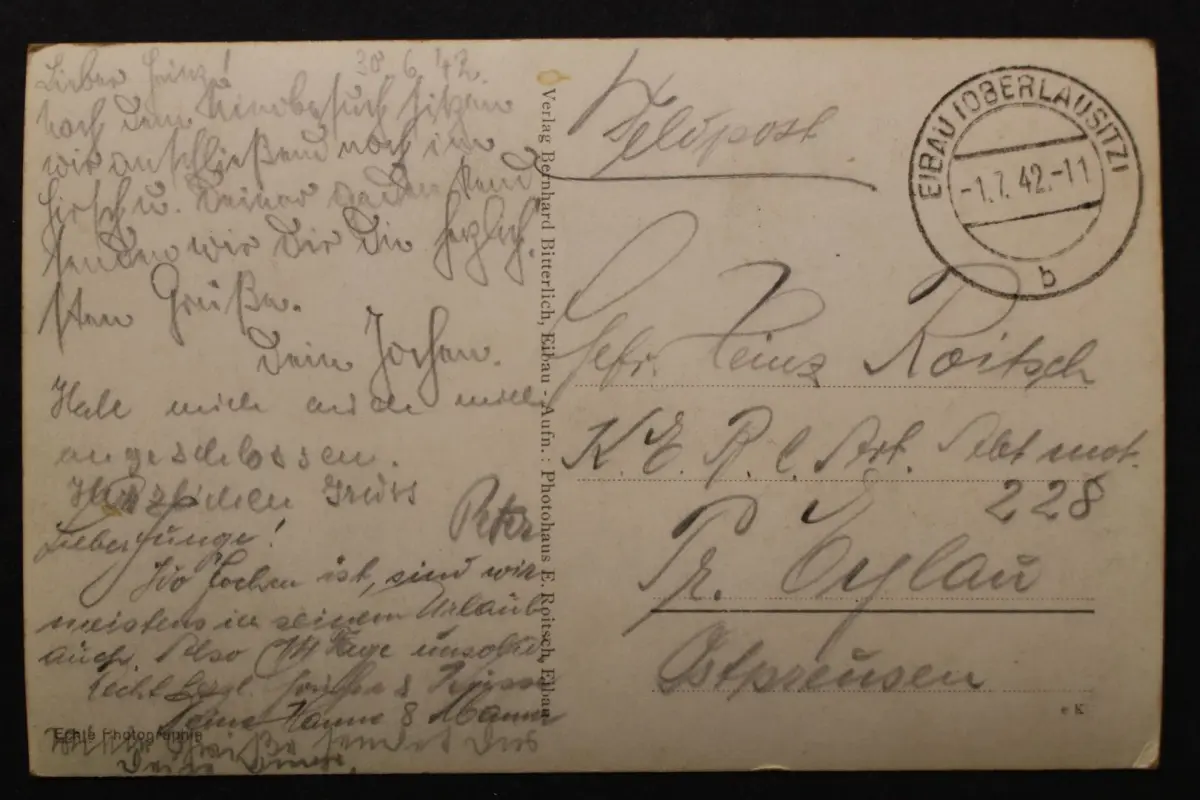 Lieber Heinz! 30.6.42.
Nach dem Kinobesuch sitzen
wir anschließend noch im
Hirsch u. Deiner gedenkend
senden wir Dir die herzlich-
sten Grüße.
Dein Jochen.
Habe mich auch mit
angeschlossen.
Herzlichen Gruss
Peter
Lieber Junge!
Wo Jochen ist, sind wir
meistens in seinem Urlaub
auch. Also 14 Tage
Grüsse & Küsse
Deine Hanne & Mama
Grüße sendet Dir
Deine
Echte Photographie
Verlag Bernhard Bitterlich, Eibau - Aufn.: Photohaus E. Roitsch, Eibau
Feldpost
EIBAU (OBERLAUSITZ)
-1.7.42.-11
b
Gefr. Heinz Roitsch
K. E. R. l. Art. Abt mot.
228
Pr. Eylau
Ostpreusen
e K